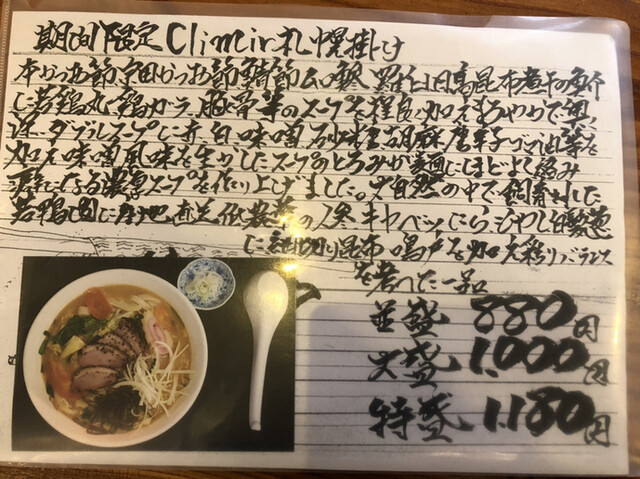 期間限定 Climin札幌掛け
本かつお節宗田かつお節鯖節ムロ鯵 羅臼 昆布煮干の魚介
に若鶏丸で鶏ガラ、豚骨等のスープを程良く加えまろやかで
ダブルスープに赤白味噌 砂糖胡麻唐辛子ゴマ油等を
加え味噌風味を生かしたスープのとろみが麺にほどよく絡み
濃厚スープを作り上げました。大自然の中で飼育された
若鴨 に 産地直送低農薬の人参 キャベツ、にら、もやし白髪葱
に細切り昆布 鳴戸を加え彩りバランス
を考へた一品
並盛 880円
大盛 1,000円
特盛 1,180円